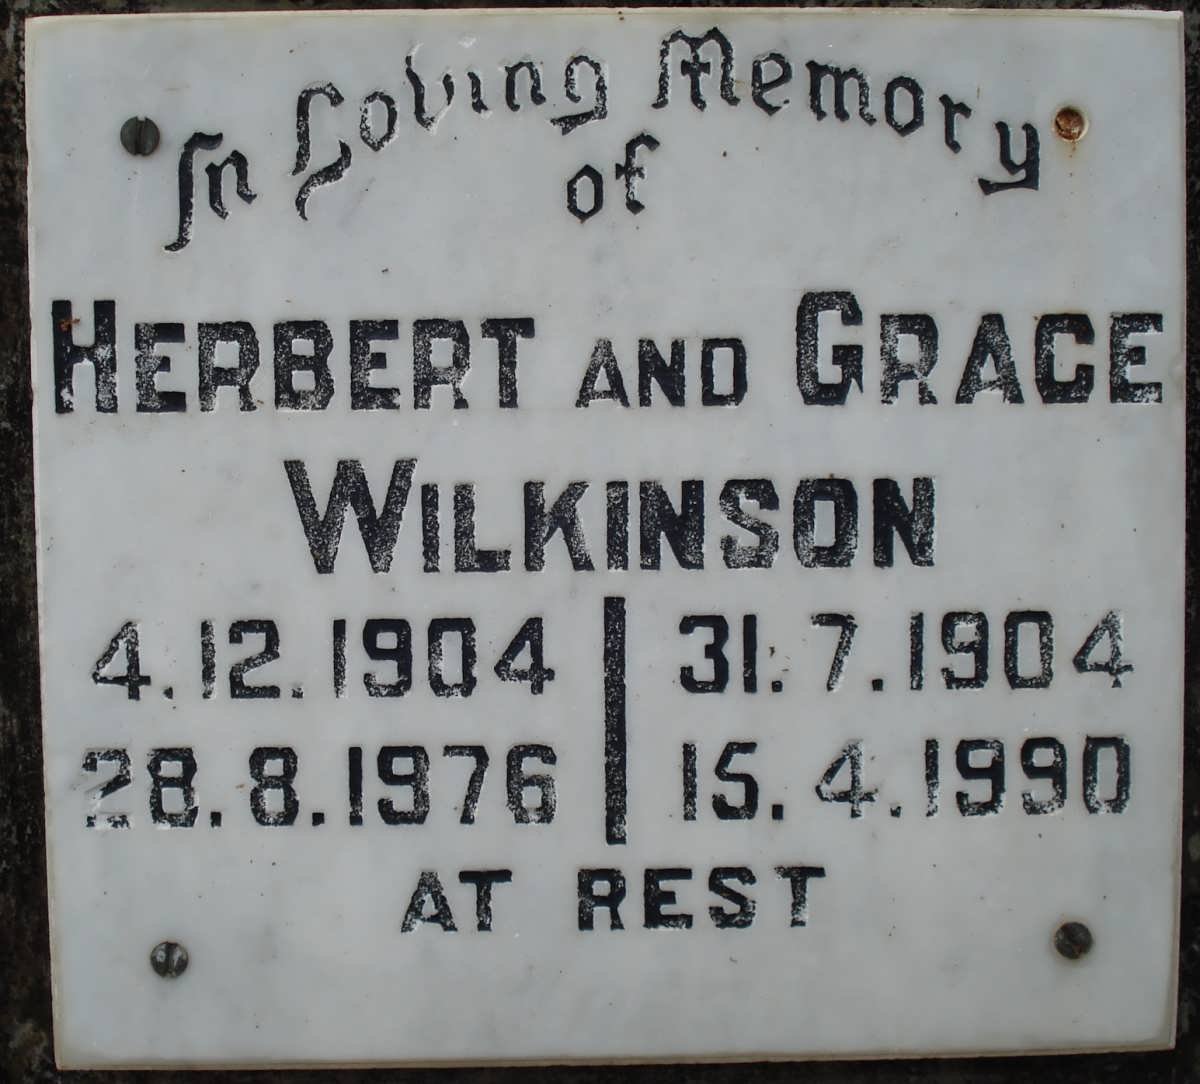 In Loving Memory
of
HERBERT AND GRACE
WILKINSON
4.12.1904 | 31.7.1904
28.8.1976 | 15.4.1990
AT REST